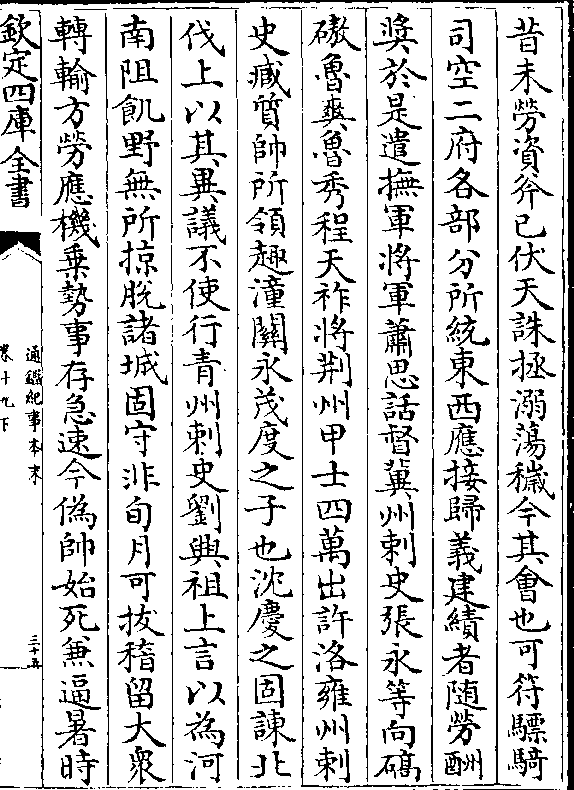 昔未勞資斧已伏天誅拯溺蕩穢今其會也可符驃騎
司空二府各部分所統東西應接歸義建績者随勞酬
奨於是遣撫軍將軍蕭思話督冀州刺史張永等向碻
磝魯爽魯秀程天祚將荆州甲士四萬出許洛雍州刺
史臧質帥所領趣潼關永茂度之子也沈慶之固諫北
伐上以其異議不使行青州刺史劉興祖上言以為河
南阻飢野無所掠脱諸城固守非旬月可拔稽留大衆
轉輸方勞應機乗勢事存急速今偽帥始死兼逼暑時
欽定四庫全書
通鑑紀事本末
卷十九下
三十五